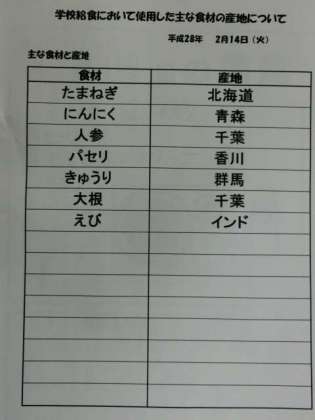 学校給食において使用した主な食材の産地について
平成28年 2月14日(火)
主な食材と産地
食材 産地
たまねぎ 北海道
にんにく 青森
人参 千葉
パセリ 香川
きゅうり 群馬
大根 千葉
えび インド